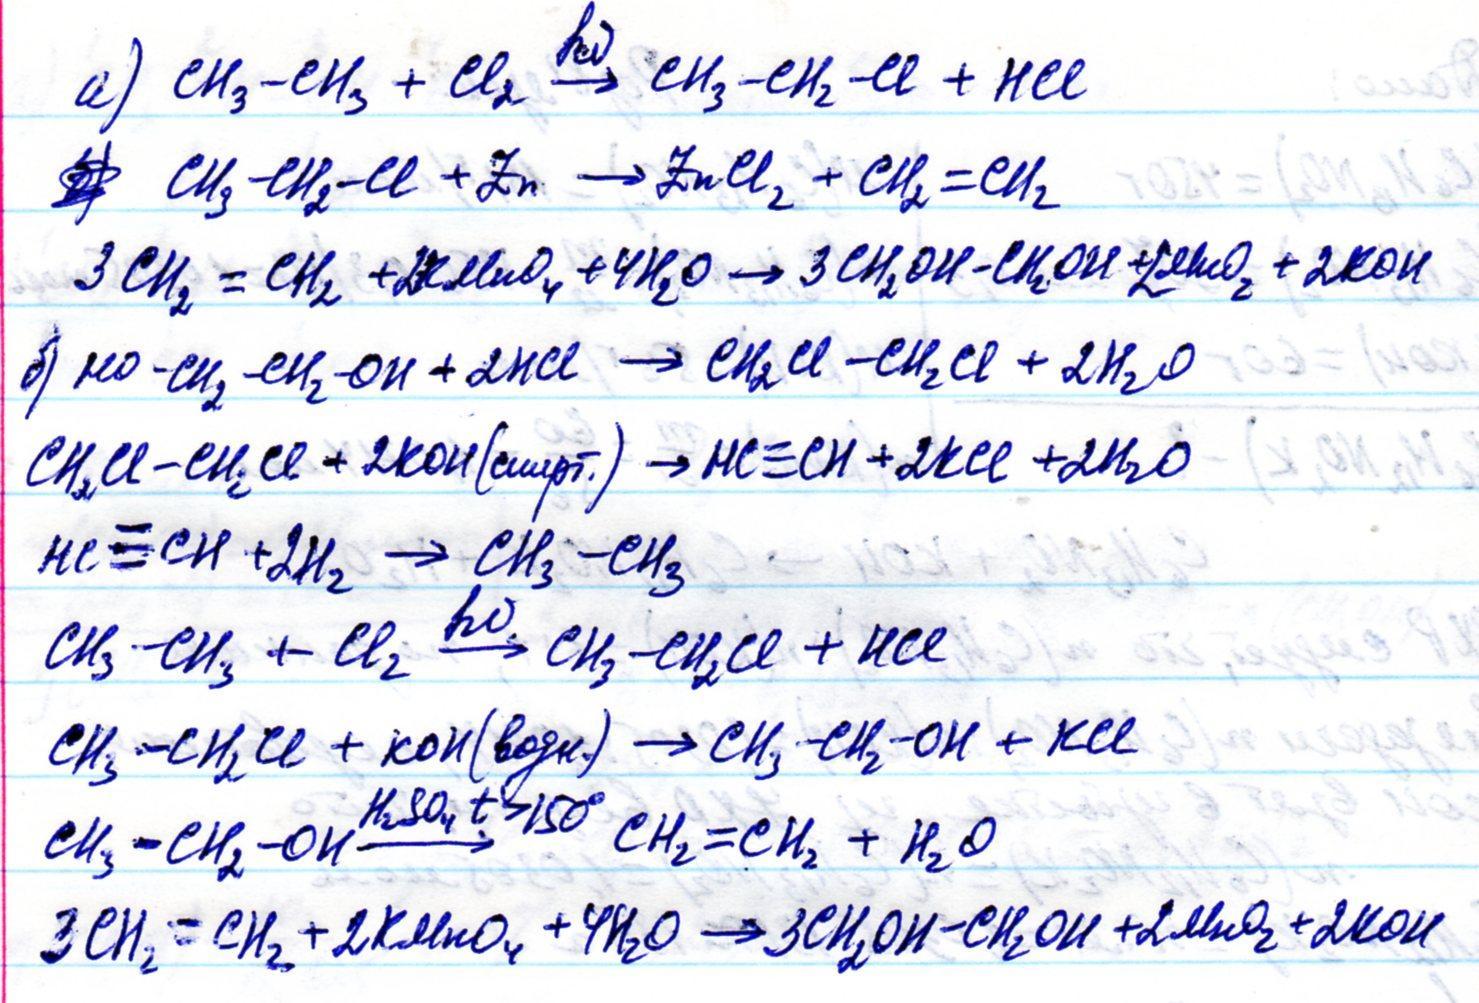 а) CH₃-CH₃ + Cl₂ →(hν) CH₃-CH₂-Cl + HCl
CH₃-CH₂-Cl + Zn → ZnCl₂ + CH₂=CH₂
3CH₂=CH₂ + 2KMnO₄ + 4H₂O → 3CH₂OH-CH₂OH + 2MnO₂ + 2KOH
б) HO-CH₂-CH₂-OH + 2HCl → CH₂Cl-CH₂Cl + 2H₂O
CH₂Cl-CH₂Cl + 2KOH(спирт.) → HC≡CH + 2KCl + 2H₂O
HC≡CH + 2H₂ → CH₃-CH₃
CH₃-CH₃ + Cl₂ →(hν) CH₃-CH₂Cl + HCl
CH₃-CH₂Cl + KOH(водн.) → CH₃-CH₂-OH + KCl
CH₃-CH₂-OH →(H₂SO₄ t>150°) CH₂=CH₂ + H₂O
3CH₂=CH₂ + 2KMnO₄ + 4H₂O → 3CH₂OH-CH₂OH + 2MnO₂ + 2KOH